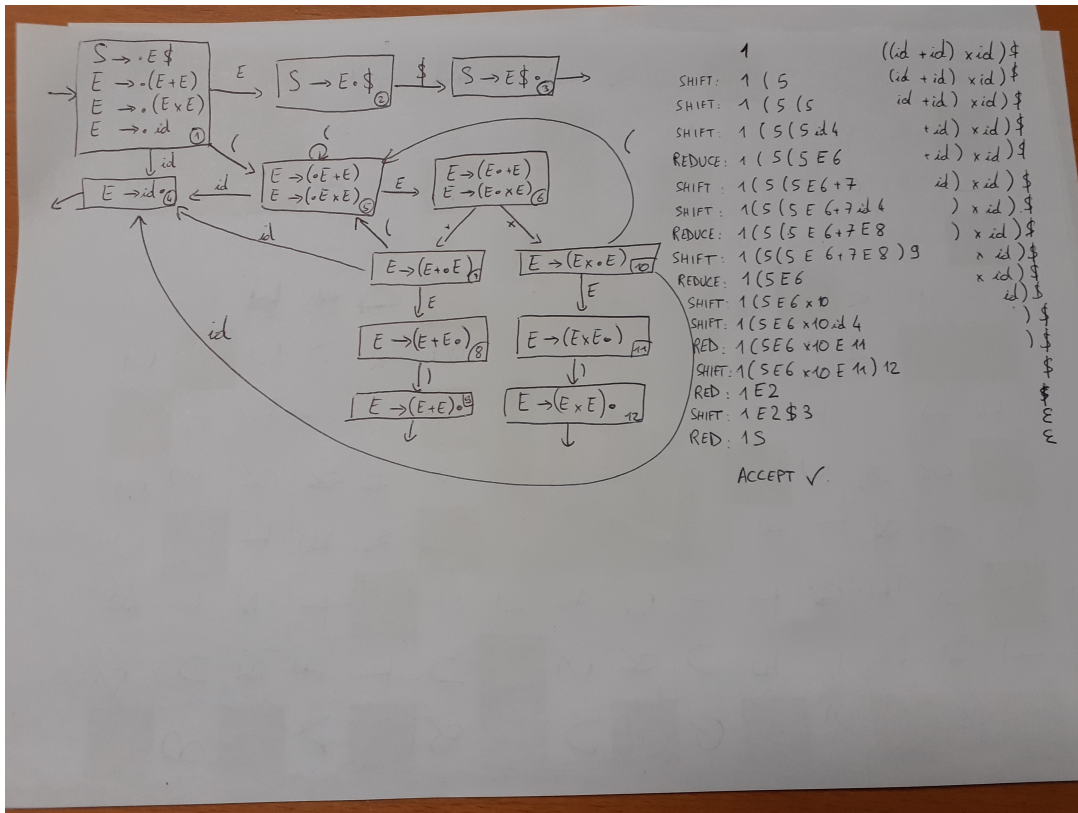 S → .E$
E → .(E+E)
E → .(E×E)
E → .id
1
E
S → E•$
2
$
S → E$•
3
id
(
(
E → id•
4
id
E → (•E+E)
E → (•E×E)
5
E
E → (E•+E)
E → (E•×E)
6
(
id
(
+
×
E → (E+•E)
7
E → (E×•E)
10
E
E
id
E → (E+E•)
8
E → (E×E•)
11
)
)
E → (E+E)•
9
E → (E×E)•
12
1 ((id +id) ×id)$
SHIFT: 1 ( 5 (id +id) ×id)$
SHIFT: 1 ( 5 ( 5 id +id) ×id)$
SHIFT: 1 ( 5 ( 5 id 4 +id) ×id)$
REDUCE: 1 ( 5 ( 5 E 6 +id) ×id)$
SHIFT: 1 ( 5 ( 5 E 6 + 7 id) ×id)$
SHIFT: 1 ( 5 ( 5 E 6 + 7 id 4 ) ×id)$
REDUCE: 1 ( 5 ( 5 E 6 + 7 E 8 ) ×id)$
SHIFT: 1 ( 5 ( 5 E 6 + 7 E 8 ) 9 ×id)$
REDUCE: 1 ( 5 E 6 ×id)$
SHIFT: 1 ( 5 E 6 × 10 id)$
SHIFT: 1 ( 5 E 6 × 10 id 4 )$
RED: 1 ( 5 E 6 × 10 E 11 )$
SHIFT: 1 ( 5 E 6 × 10 E 11 ) 12 $
RED: 1 E 2 $
SHIFT: 1 E 2 $ 3 ε
RED: 1 S ε
ACCEPT ✓